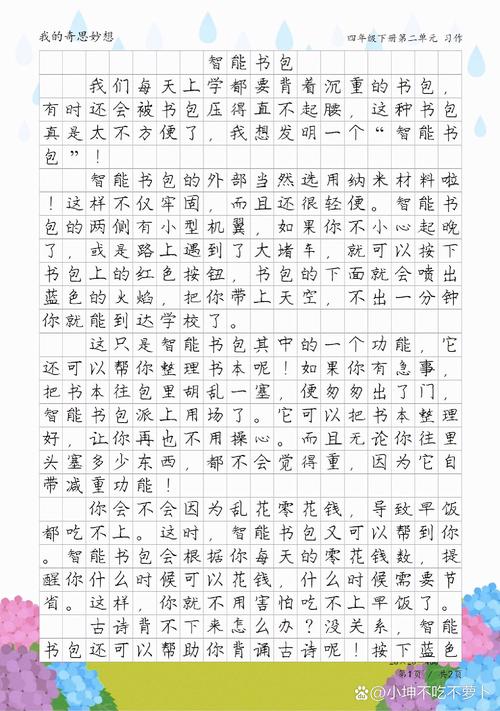 我的奇思妙想
四年级下册第二单元 习作
智能书包
我们每天上学都要背着沉重的书包，
有时还会被书包压得直不起腰，这种书包
真是太不方便了，我想发明一个“智能书
包”！
智能书包的外部当然选用纳米材料啦
！这样不仅牢固，而且还很轻便。智能书
包的两侧有小型机翼，如果你不小心起晚
了，或是路上遇到了大堵车，就可以按下
书包上的红色按钮，书包的下面就会喷出
蓝色的火焰，把你带上天空，不出一分钟
你就能到达学校了。
这只是智能书包其中的一个功能，它
还可以帮你整理书本呢！如果你有急事，
把书本往包里胡乱一塞，便匆匆出了门，
智能书包派上用场了。它可以把书本整理
好，让你再也不用操心。而且无论你往里
头塞多少东西，都不会觉得重，因为它自
带减重功能！
你会不会因为乱花零花钱，导致早饭
都吃不上。这时，智能书包又可以帮到你
。智能书包会根据你每天的零花钱数，提
醒你什么时候可以花钱，什么时候需要节
省。这样，你就不用害怕吃不上早饭了。
古诗背不下来怎么办？没关系，智能
书包还可以帮助你背诵古诗呢！按下蓝色
第1页 / 共2页
@小坤不吃不萝卜